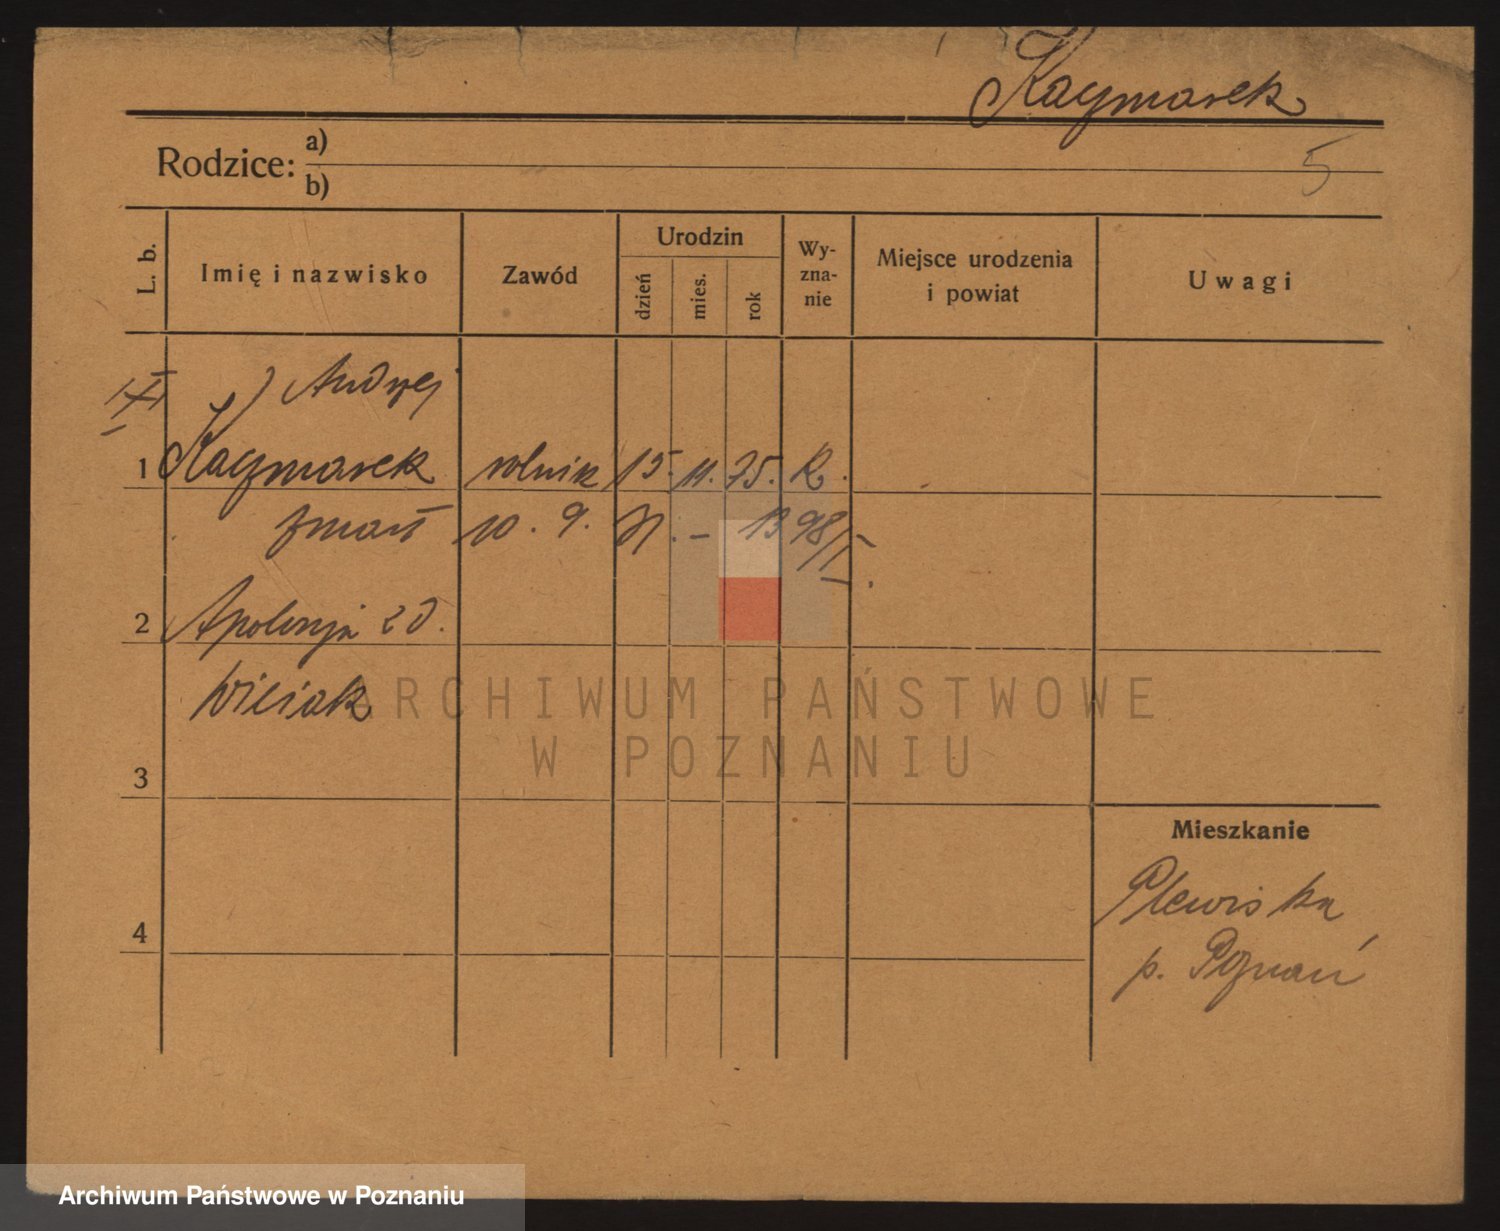 Kaczmarek
Rodzice: a)
b)
5
L. b.
Imię i nazwisko
Zawód
Urodzin
dzień
mies.
rok
Wy-
zna-
nie
Miejsce urodzenia
i powiat
Uwagi
Andrzej
1 Kaczmarek rolnik 15. 11. 75. R.
zmarł 10. 9. 31. - 1398/I.
2 Apolonja zd.
Wiciak
3
4
Mieszkanie
Plewiska
p. Poznań
ARCHIWUM PAŃSTWOWE
W POZNANIU
Archiwum Państwowe w Poznaniu